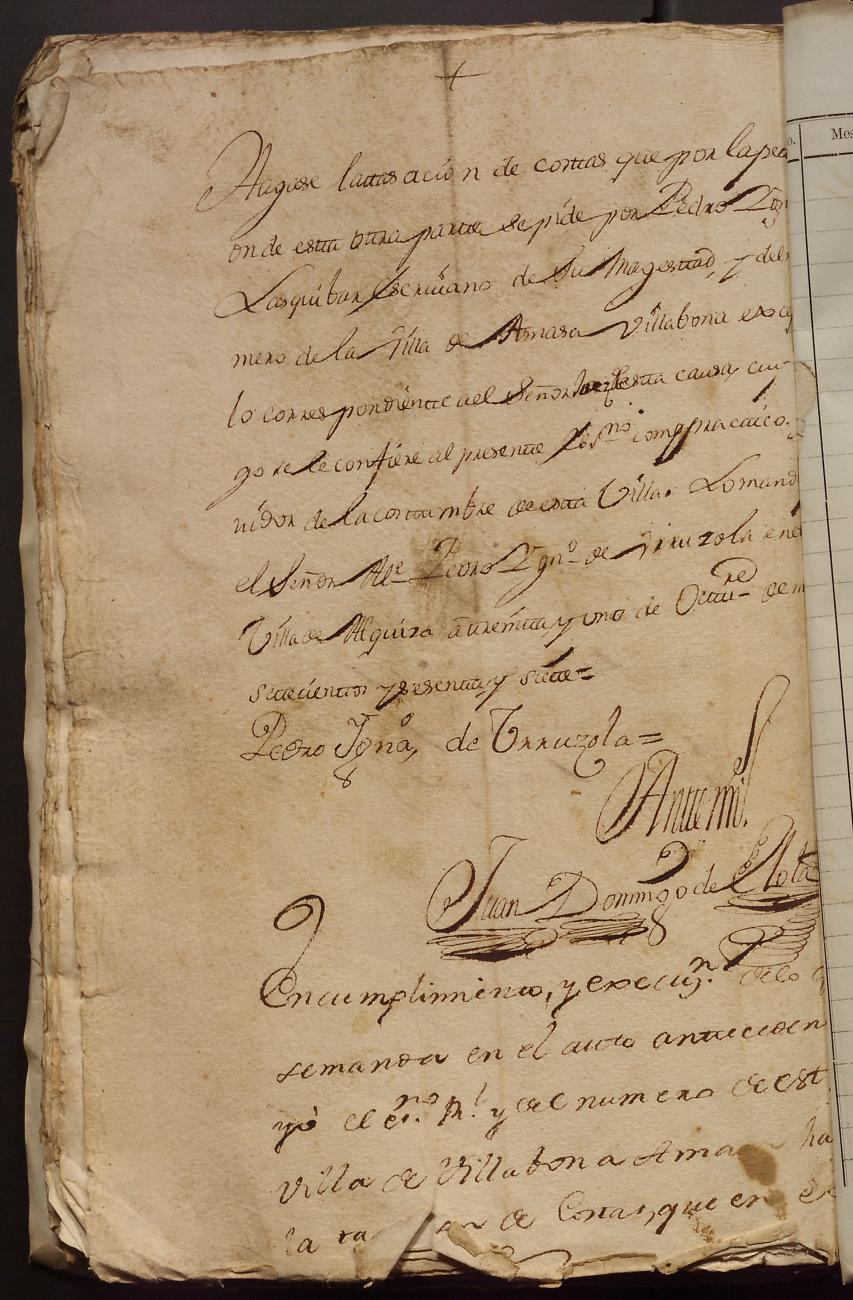 +
Hagase lattasacion de costas que por lapeti
onde estta ottra partte se pide por Pedro Ygn
Lasquibar Escriuano de Su Magesttad, y del
mero de la Villa de Amasa Villabona excep
lo correspondientte ael Señor Juez de estta causa, cui
go se le confiere al presentte Essno. como practtico
nidor de la costtumbre de estta Villa. Lo mand
el Señor Alce. Pedro Ygno. de Yrruzola en es
Villa de Alquiza a ttreintta, y uno de Octture. de m
settecienttos y sesentta, y siette=
Pedro Ygno. de Yrruzola=
Antte mi.
Juan Domingo de
En cumplimiento, y execuzn. de lo q
se manda en el auto anttecceden
yo el esno. Rl. y del numero de est
villa de Villabona Amasa ha
la de Costas, que en